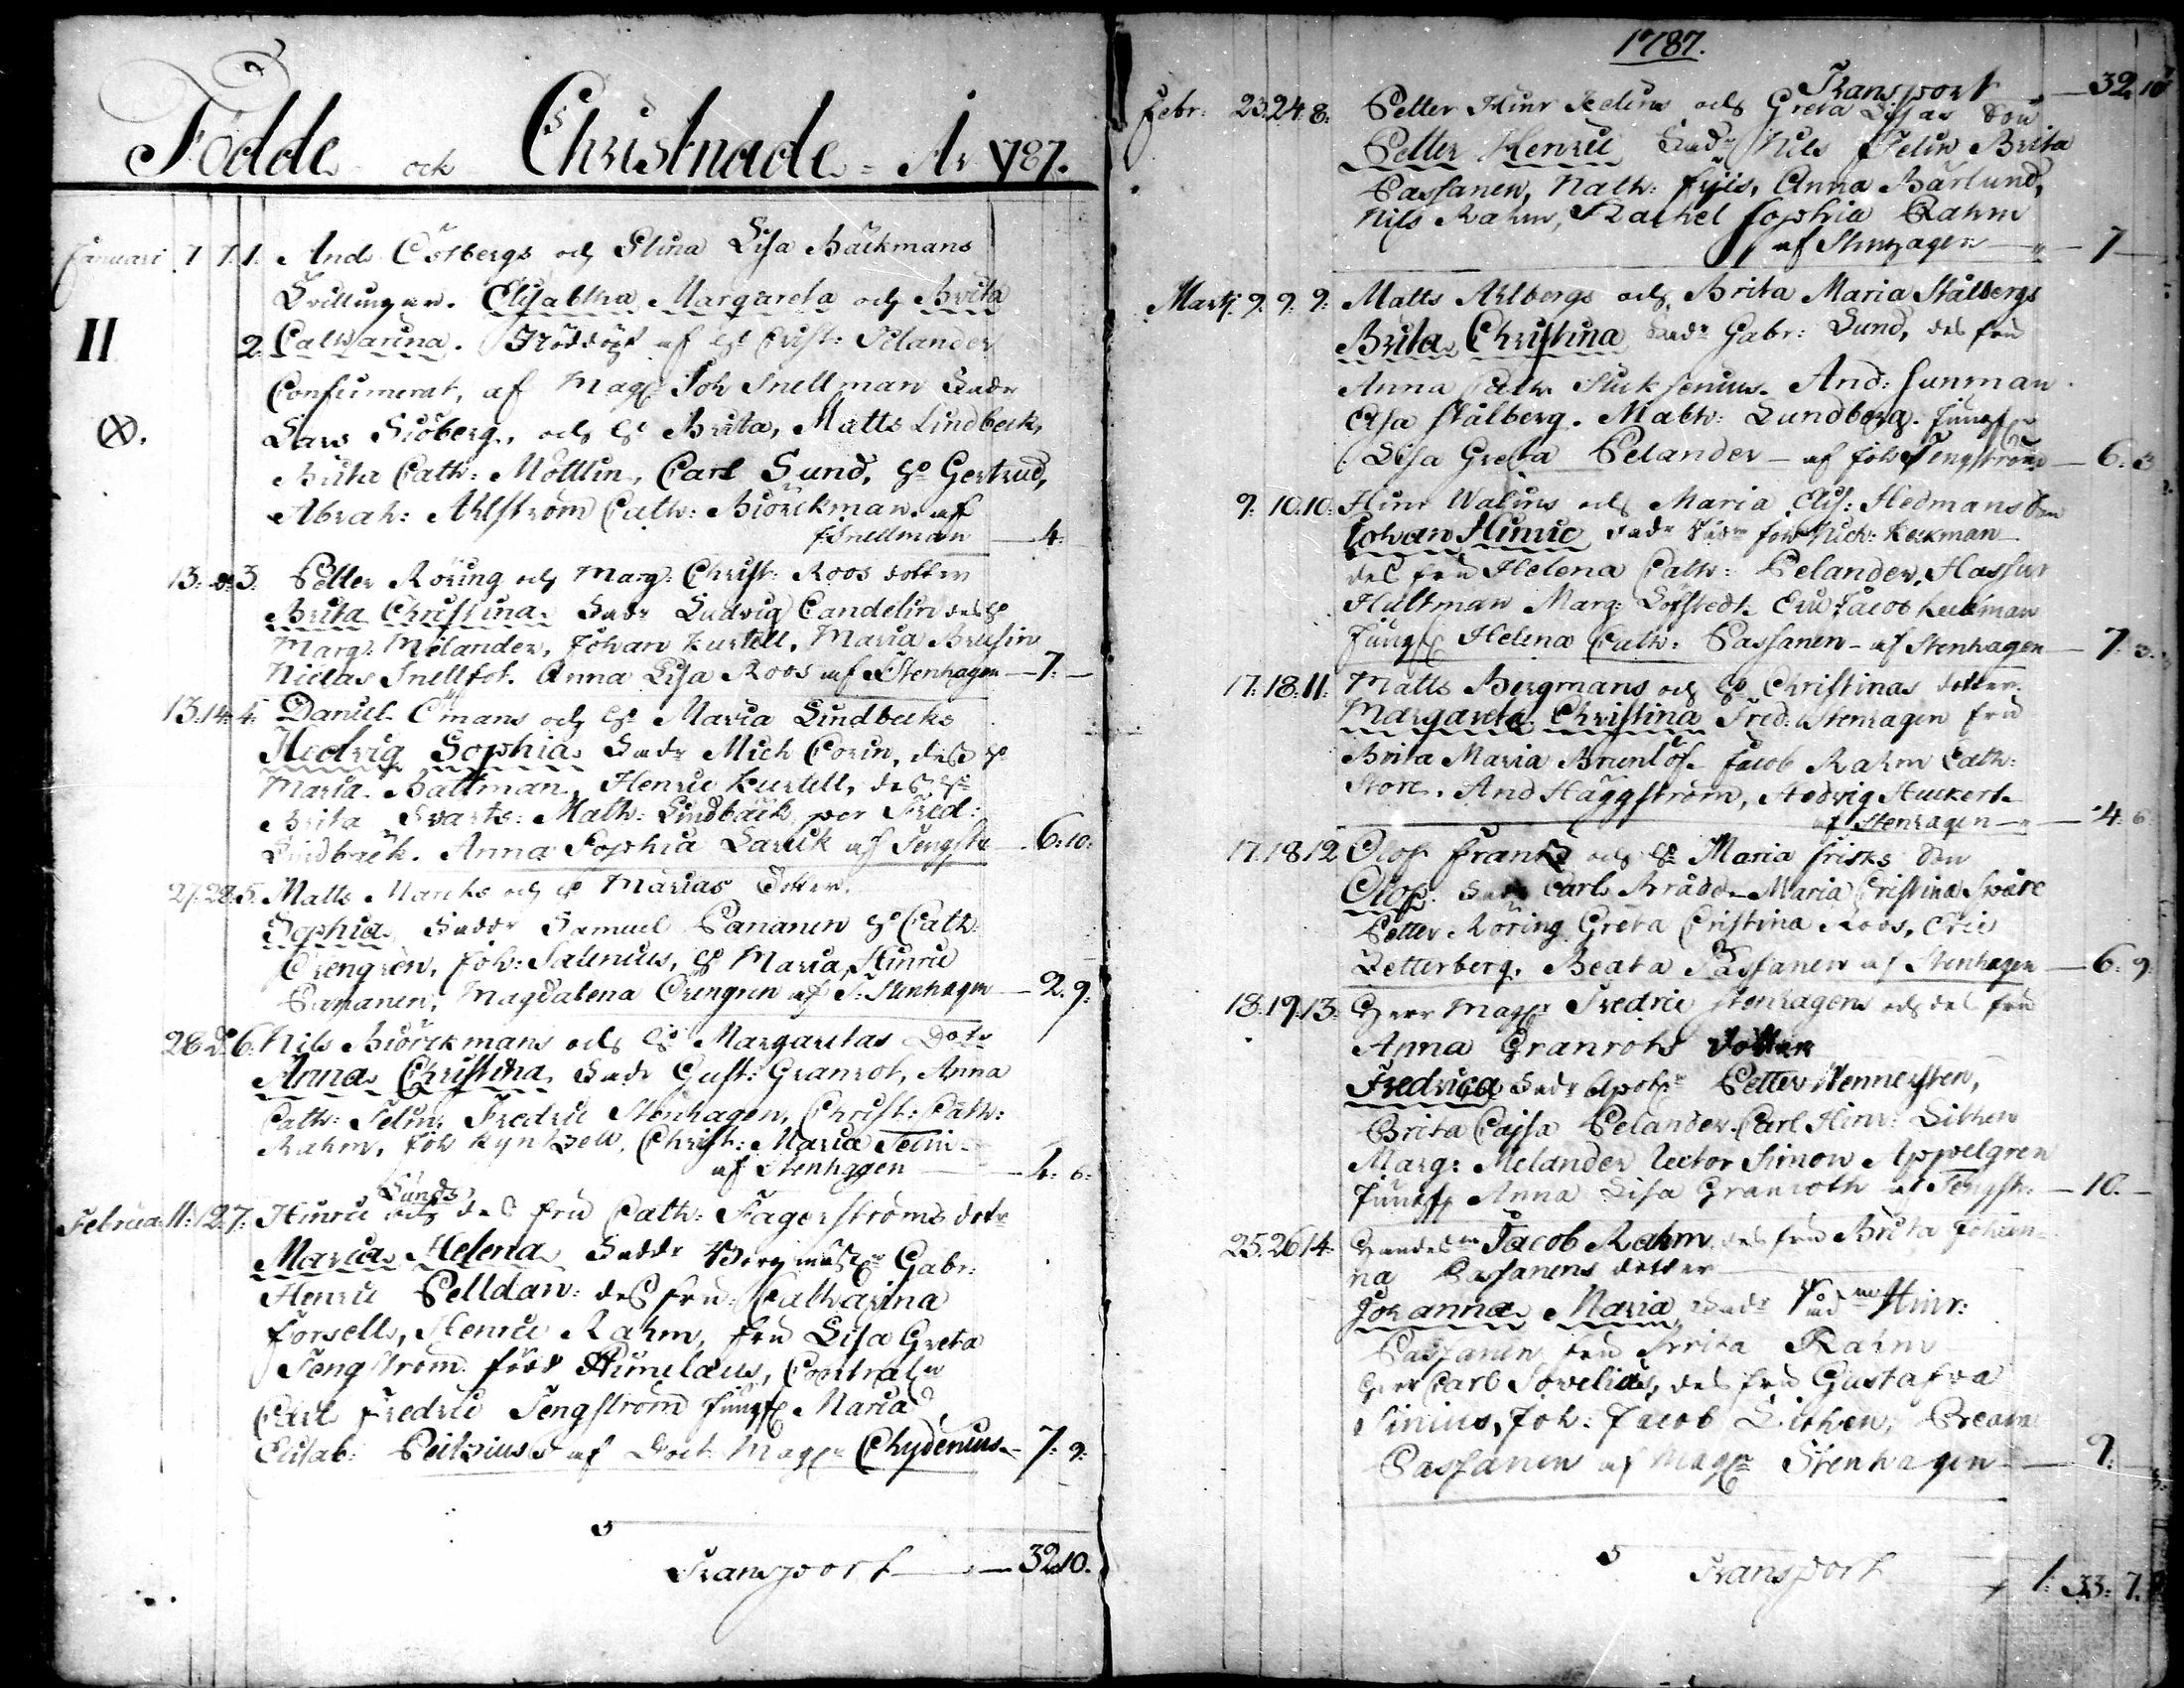 Födde och Christnade År 1787.
Januari 7 7. 1. And. Östbergs och Stina Lisa Bäckmans
Tvillingar. Elisabtha Margareta och Brita
II
2. Catharina. Nöddöpt af h. Christ: Pelander
Confirmerat, af Mag. Joh Snellman Tad.
Lars Siöberg, och h. Brita, Matts Lindbeck,
Brita Cath: Möttlin, Carl Lund, h. Gertrud,
Abrah: Ahlström Cath: Biörckman. af
Snellman — 4.
13: d: 3. Petter Röring och Marg: Christ: Roos dotter
Brita Christina. Tad. Ludvig Candelin des h.
Marg: Melander, Johan Kurtell, Maria Brusin
Niclas Snellfot. Anna Lisa Roos af Stenhagen — 7. —
13. 14. 4. Daniel Ömans och h. Maria Lindbecks
Hedvig Sophia. Tad. Mich Corin, des h.
Maria Battman, Henric Kurtell, des h.
Brita Svarts: Math: Lindbäck, per Fred:
Lindbäck. Anna Sophia Larick af Tengstr. — 6:10:
27. 28. 5. Matts Marcks och h. Marias dotter.
Sophia. Tad. Samuel Pananen h. Cath.
Örengren, Joh: Salenius, h. Maria, Hinric
Pananen, Magdalena Örengren af F. Stenhagen — 2. 9:
28 d. 6. Nils Biörckmans och h. Margaretas Dotr
Anna Christina. Tad. Gust: Granrot, Anna
Cath: Telin, Fredric Stenhagen, Christ: Cath:
Rahm, Joh Kyntzell, Christ: Maria Telin
af Stenhagen — 4. 6.
Lunds
Februar. 11: 12. 7: Hinric och des fru Cath: Fagerströms dotr
Maria Helena. Tad. Borgmäst. Gabr:
Henric Pelldan: des fru: Catharina
Forsell, Henric Rahm, fru Lisa Greta
Tengström född Rimelaus,
Carl Fredric Tengström Jungf. Maria
Elisab: Peitzius af Doct. Mag. Chydenius — 7: 9:
Transport — 32.10.
1787.
Transport — 32 10
Febr: 23: 24: 8: Petter Hinr Telins och Greta Lisas Son
Petter Henric Tad. Nils Telin Brita
Passanen, Math: Fris, Anna Bärlund,
Nils Rahm, Rachel Sophia Rahm
af Stenhagen — 7 —
Martj. 9. 9: 9: Matts Ahlbergs och Brita Maria Stålbergs
Brita Christina Tad. Gabr: Lund, des fru
Anna Cath. And: Sunman
Elsa Stålberg. Math: Lundberg. Jungf.
Lisa Greta Pelander — af Joh Tengström — 6: 3
9: 10. 10: Hinr Walins och Maria Elis: Hedmans Son
Johan Hinric Joh Mich: Keckman
des fru Helena Cath: Pelander, Hassur
Hultman Marg: Löfstedt Eric Jacob Keckman
Jungf. Helena Cath: Passanen — af Stenhagen — 7: 3.
17: 18. 11: Matts Bergmans och h. Christinas dotter.
Margareta Christina Fred. Stenhagen fru
Brita Maria Brunlöf. Jacob Rahm Cath:
Store. And Häggström, Hedvig Stuckert.
af Stenhagen — 4. 6.
17. 18 12 Olof Frantz och h. Maria Frisks Son
Olof. Tad. Carl Brådd. Maria Christina Spåre
Petter Röring Greta Christina Roos, Eric
Zetterberg, Beata Passanen af Stenhagen — 6: 9:
18. 19. 13: Herr Mag. Fredric Stenhagens och des fru
Anna Granrots Dotter
Fredrica Tad. Apoth. Petter Wennersten,
Brita Cajsa Pelander. Carl Hinr: Lithen
Marg: Melander Rector Simon Appelgren
Jungf. Anna Lisa Granroth af Tengstr. — 10. —
25. 26 14: Handelsm Jacob Rahm, des fru Brita Johan-
na Passanens dotter
Johanna Maria Tad. Hinr:
Passanen fru Brita Rahm
Herr Carl Sovelius, des fru Gustafva
Sinius, Joh: Jacob Lithen, Beata
Passanen af Mag. Stenhagen — 9: —
Transport 1: 33: 7.